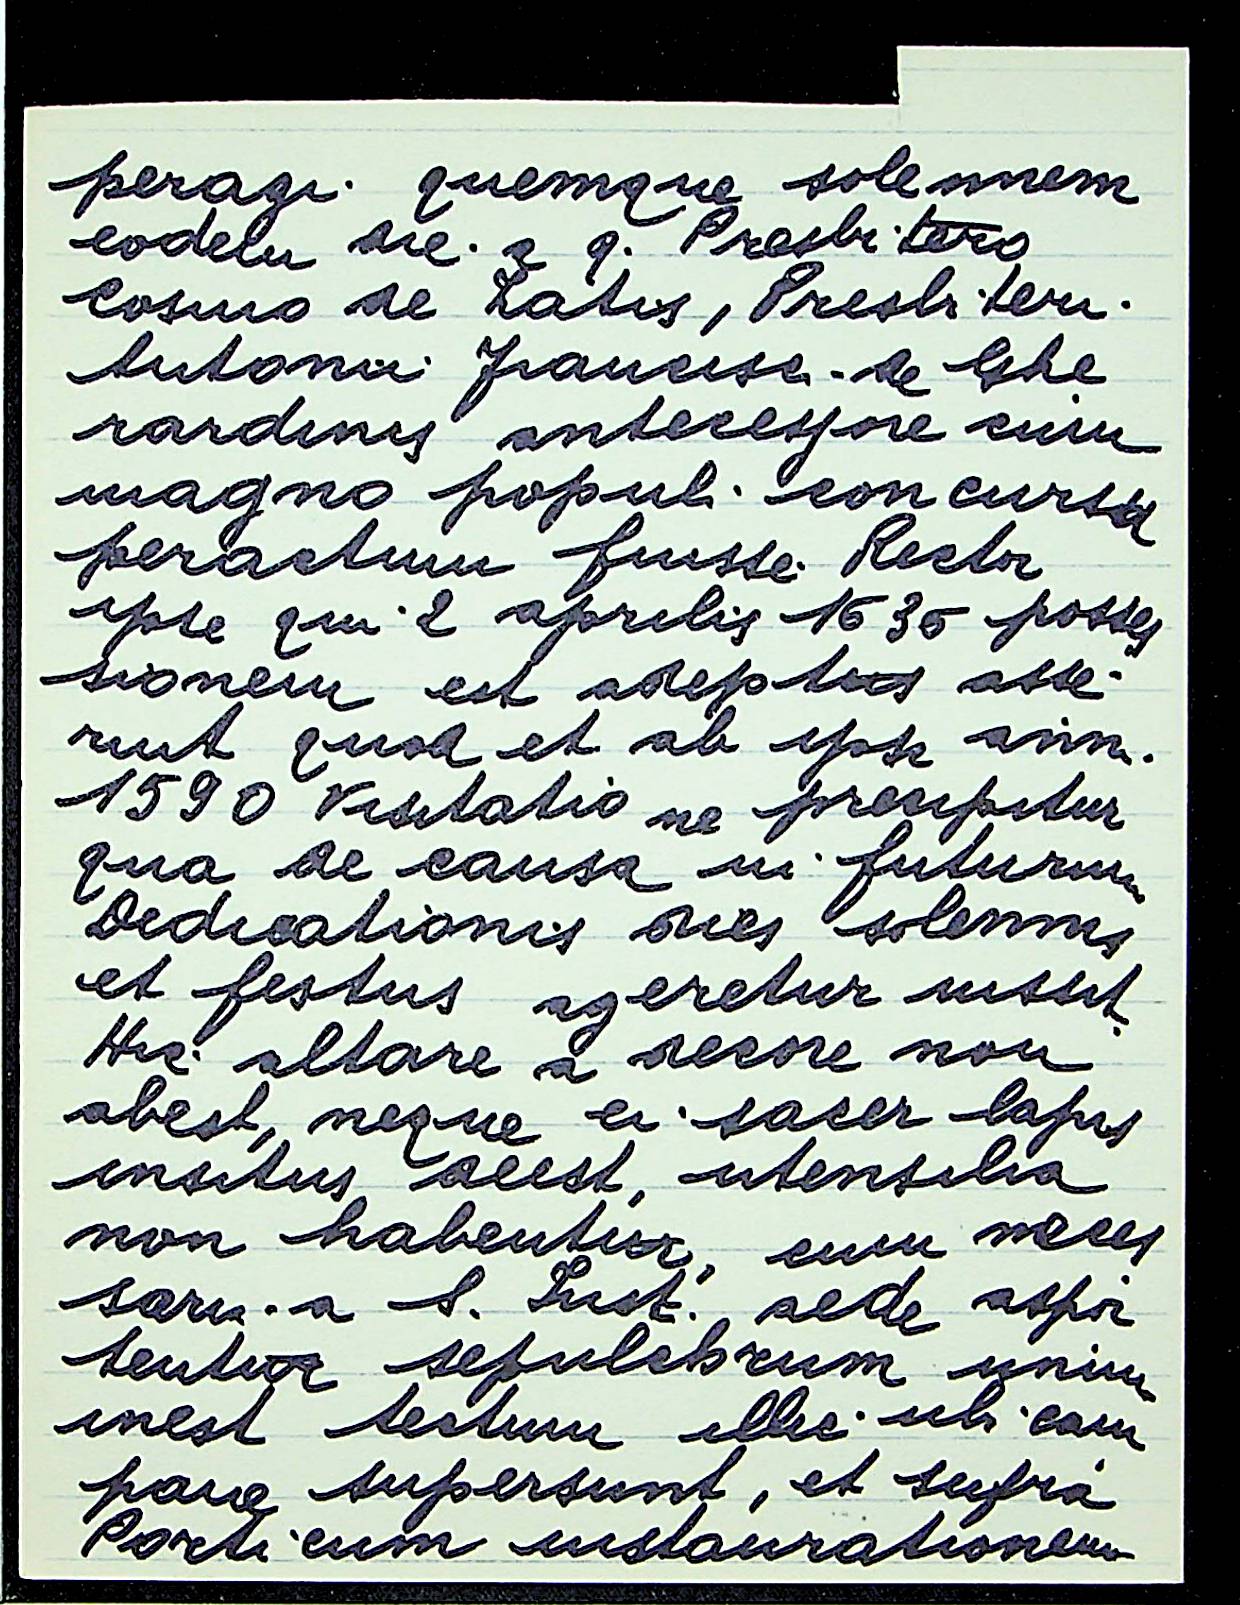 peragi quemque solennem
eodem die a q. Presbitero
Cosmo de Latis, Presbiteri
Antonii Francisci de Ghe
rardinis antecessore cum
magno populi concursu
peractum fuisse. Rector
ipse qui 2 aprilis 1635 posses
sionem est adeptus asse
ruit quod et ab ipso ann.
1590 Visitatione precipitur
qua de causa in futurum
Dedicationis dies solennis
et festus ageretur iussit.
Hic altare a decore non
abest, neque ei sacer lapis
insitus deest, utensilia
non habentur, cum neces
saria a S. Iust. aede aspor
tentur sepulchrum unum
inest tectum illic ubi cam
pane supersunt, et supra
Porticum instaurationem